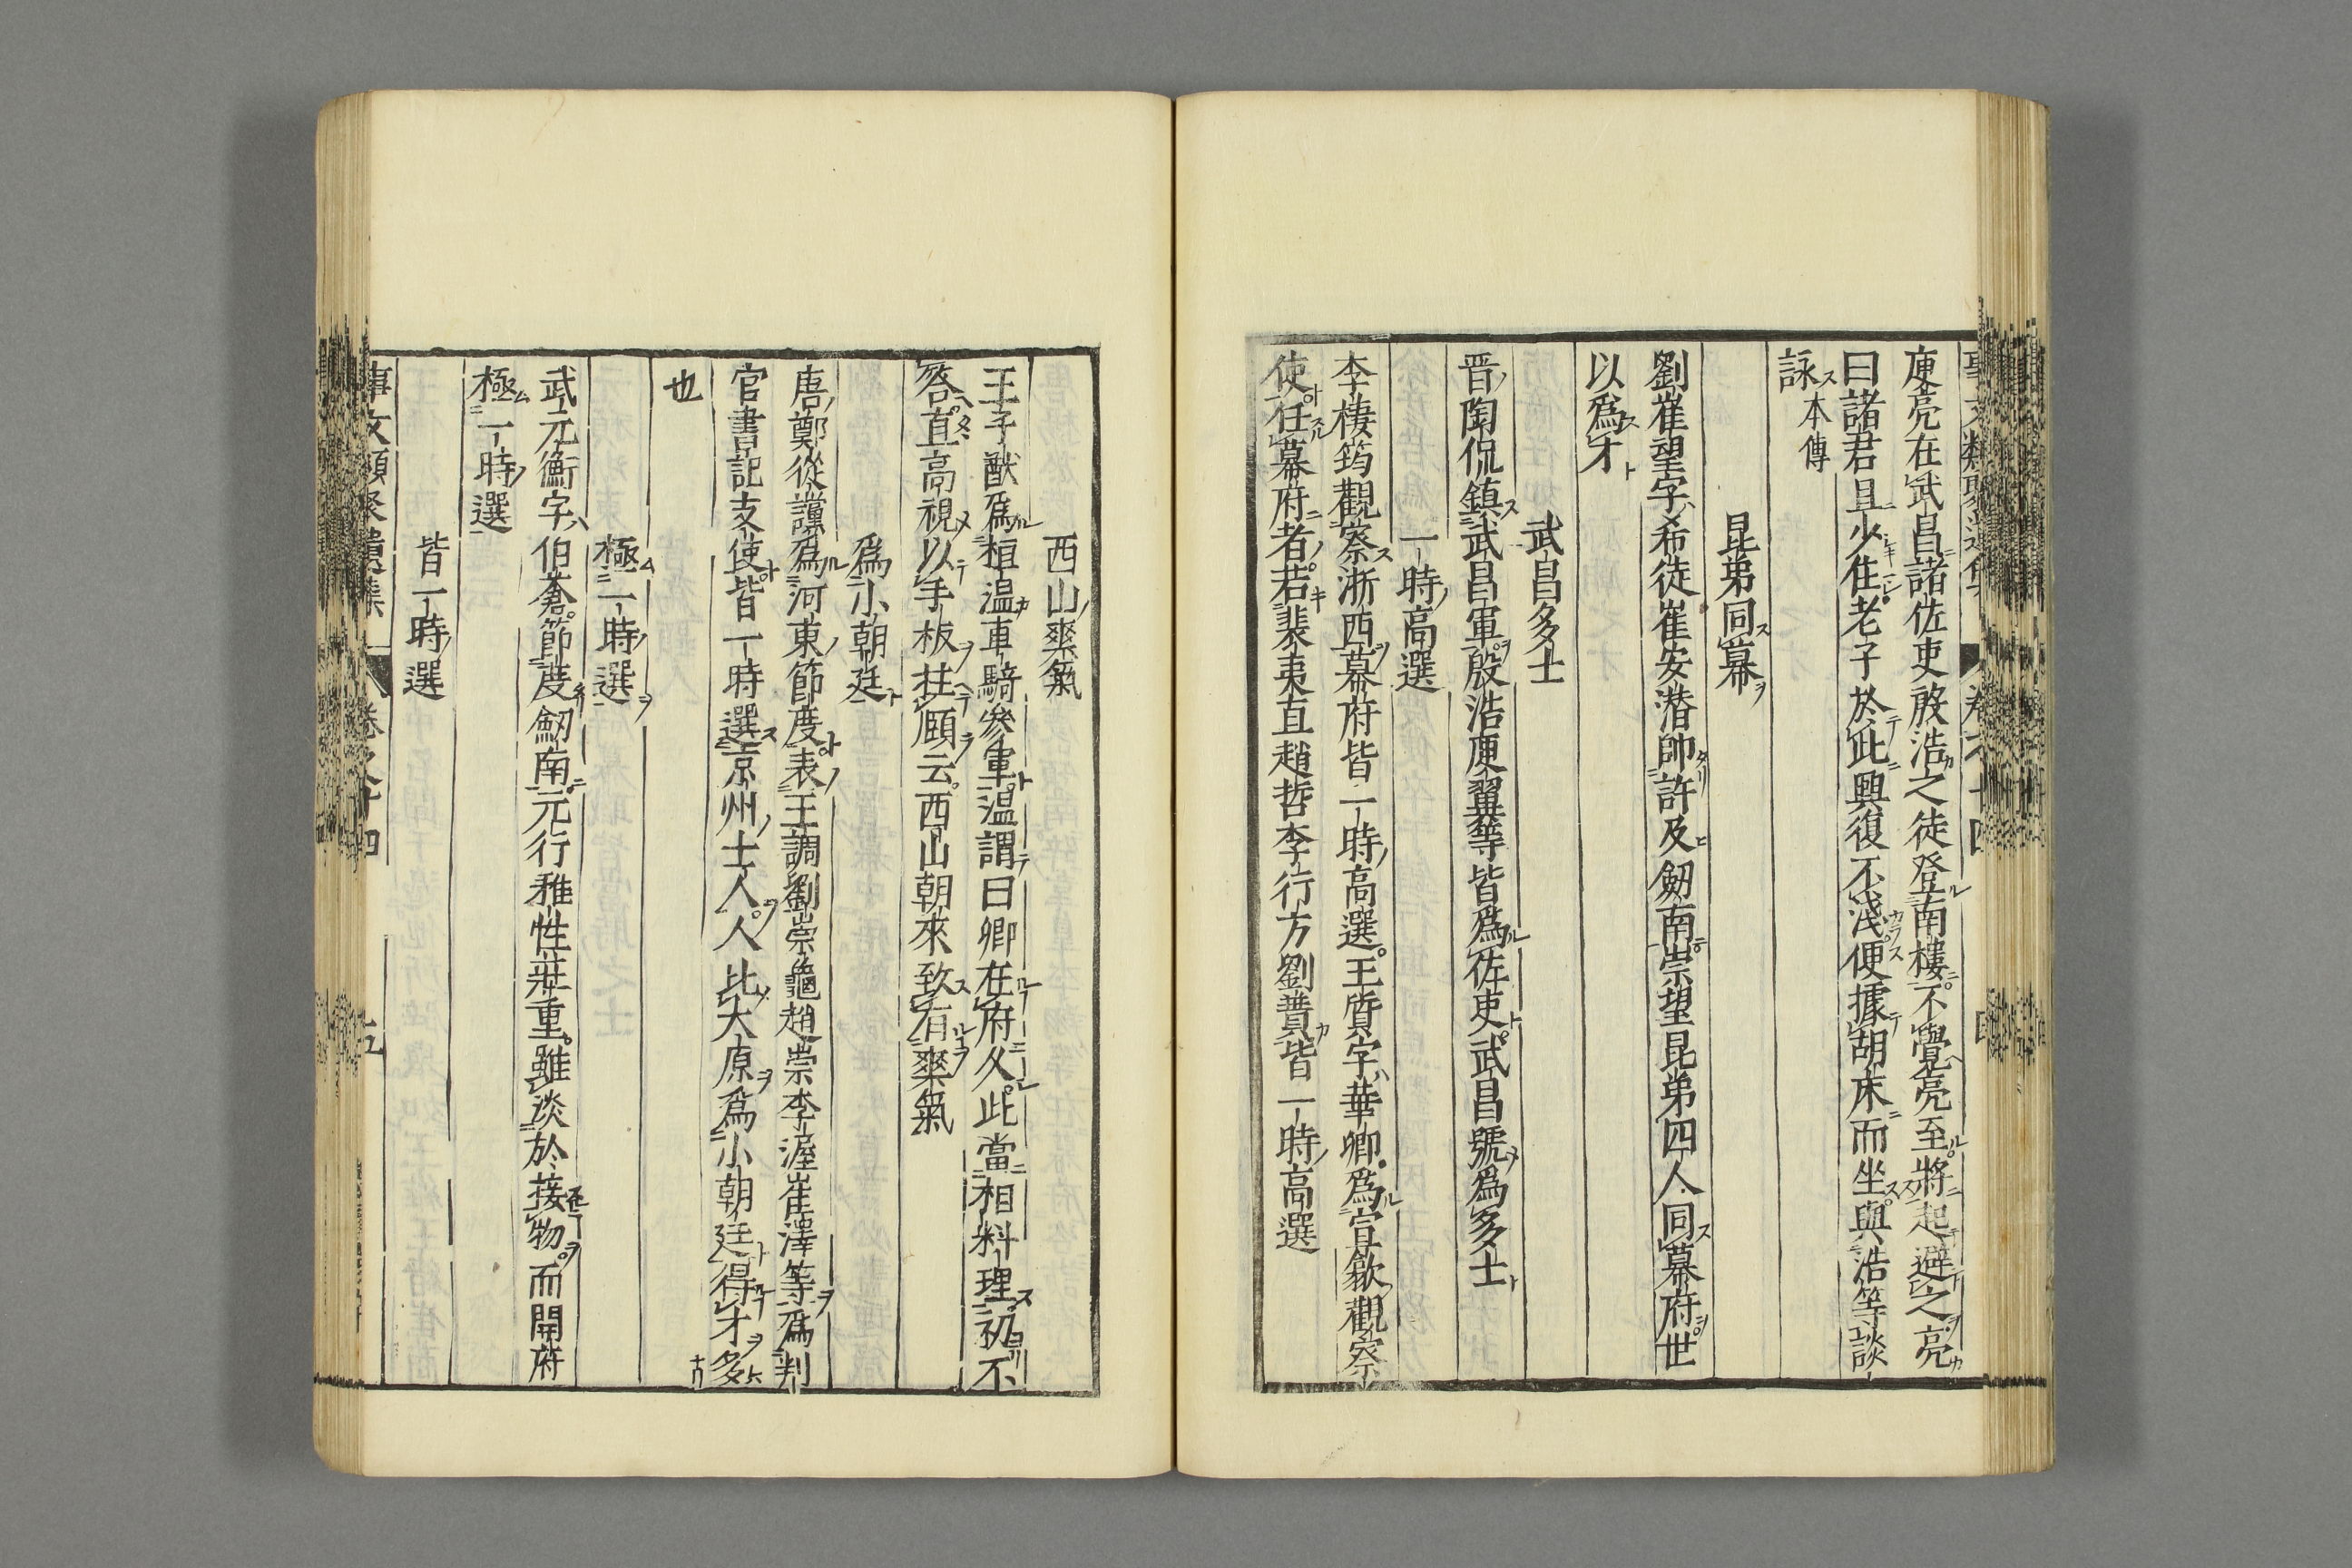 庾亮在武昌諸佐吏殷浩之徒登南樓不覺亮至將起避之亮
曰諸君且少住老子於此興復不淺便據胡床而坐與浩等談
詠本傳
昆弟同幕
劉崔望字希徒崔安潜帥許及劒南崇望昆弟四人同幕府世
以爲才
武昌多士
晋陶侃鎮武昌軍殷浩庾翼等皆爲佐吏武昌號爲多士
一時高選
李棲筠觀察浙西幕府皆一時高選王質字華卿爲宣歙觀察
使任幕府者若裴夷直趙哲李行方劉蕡皆一時高選
西山爽氣
王子猷爲桓温車騎參軍温謂曰卿在府久此當相料理初不
答直高視以手板拄頤云西山朝來致有爽氣
爲小朝廷
唐鄭從讜爲河東節度表王調劉崇龜趙崇李渥崔澤等爲判
官書記支使皆一時選京州士人人比大原爲小朝廷得才多
也
極一時選
武元衡字伯蒼節度劒南元行雅性莊重雖淡於接物而開府
極一時選
皆一時選
事文類聚遺集 卷之十四 五